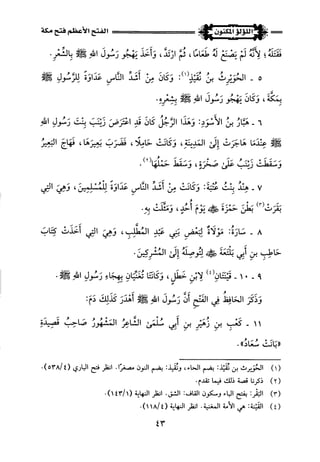 الفتح الأعظم فتح مكة
اللؤلؤ المكنون
فَقَتَلَهُ؛ لِأَنَّهُ لَمْ يَصْنَعْ لَهُ طَعَامًا، ثُمَّ ارْتَدَّ، وَأَخَذَ يَهْجُو رَسُولَ اللهِ ﷺ بِالشِّعْرِ.
٥ - الحُوَيْرِثُ بنُ نُقَيْذٍ(١): وَكَانَ مِنْ أَشَدِّ النَّاسِ عَدَاوَةً لِلرَّسُولِ ﷺ
بِمَكَّةَ، وَكَانَ يَهْجُو رَسُولَ اللهِ ﷺ بِشِعْرِهِ.
٦ - هَبَّارُ بنُ الأَسْوَدِ: وَهَذَا الرَّجُلُ كَانَ قَدِ اعْتَرَضَ زَيْنَبَ بِنْتَ رَسُولِ اللهِ
ﷺ عِنْدَمَا هَاجَرَتْ إِلَى المَدِينَةِ، وَكَانَتْ حَامِلًا، فَضَرَبَ بَعِيرَهَا، فَهَاجَ البَعِيرُ
وَسَقَطَتْ زَيْنَبُ عَلَى صَخْرَةٍ، وَسَقَطَ حَمْلُهَا(٢).
٧ - هِنْدُ بِنْتُ عُتْبَةَ: وَكَانَتْ مِنْ أَشَدِّ النَّاسِ عَدَاوَةً لِلْمُسْلِمِينَ، وَهِيَ التِي
بَقَرَتْ(٣) بَطْنَ حَمْزَةَ ﷺ يَوْمَ أُحُدٍ، وَمَثَّلَتْ بِهِ.
٨ - سَارَةُ: مَوْلَاةٌ لِبَعْضِ بَنِي عَبْدِ المُطَّلِبِ، وَهِيَ التِي أَخَذَتْ كِتَابَ
حَاطِبِ بنِ أَبِي بَلْتَعَةَ ﷺ لِتُوصِلَهُ إِلَى المُشْرِكِينَ.
٩ - ١٠ - قَيْنَتَانِ(٤) لِابْنِ خَطَلٍ، وَكَانَتَا تُغَنِّيَانِ بِهِجَاءِ رَسُولِ اللهِ ﷺ.
وَذَكَرَ الحَافِظُ فِي الفَتْحِ أَنَّ رَسُولَ اللهِ ﷺ أَهْدَرَ كَذَلِكَ دَمَ:
١١ - كَعْبِ بنِ زُهَيْرِ بنِ أَبِي سُلْمَى الشَّاعِرُ المَشْهُورُ صَاحِبُ قَصِيدَةِ
«بَانَتْ سُعَادُ».
(١) الحُوَيْرث بن نُقَيْذ: بضم الحاء، ونُقيذ: بضم النون مصغرًا. انظر فتح الباري (٤/ ٥٣٨).
(٢) ذكرنا قصة ذلك فيما تقدم.
(٣) البَقْر: بفتح الباء وسكون القاف: الشق. انظر النهاية (١/ ١٤٣).
(٤) القَيْنَة: هي الأمة المغنية. انظر النهاية (٤/ ١١٨).
٤٣